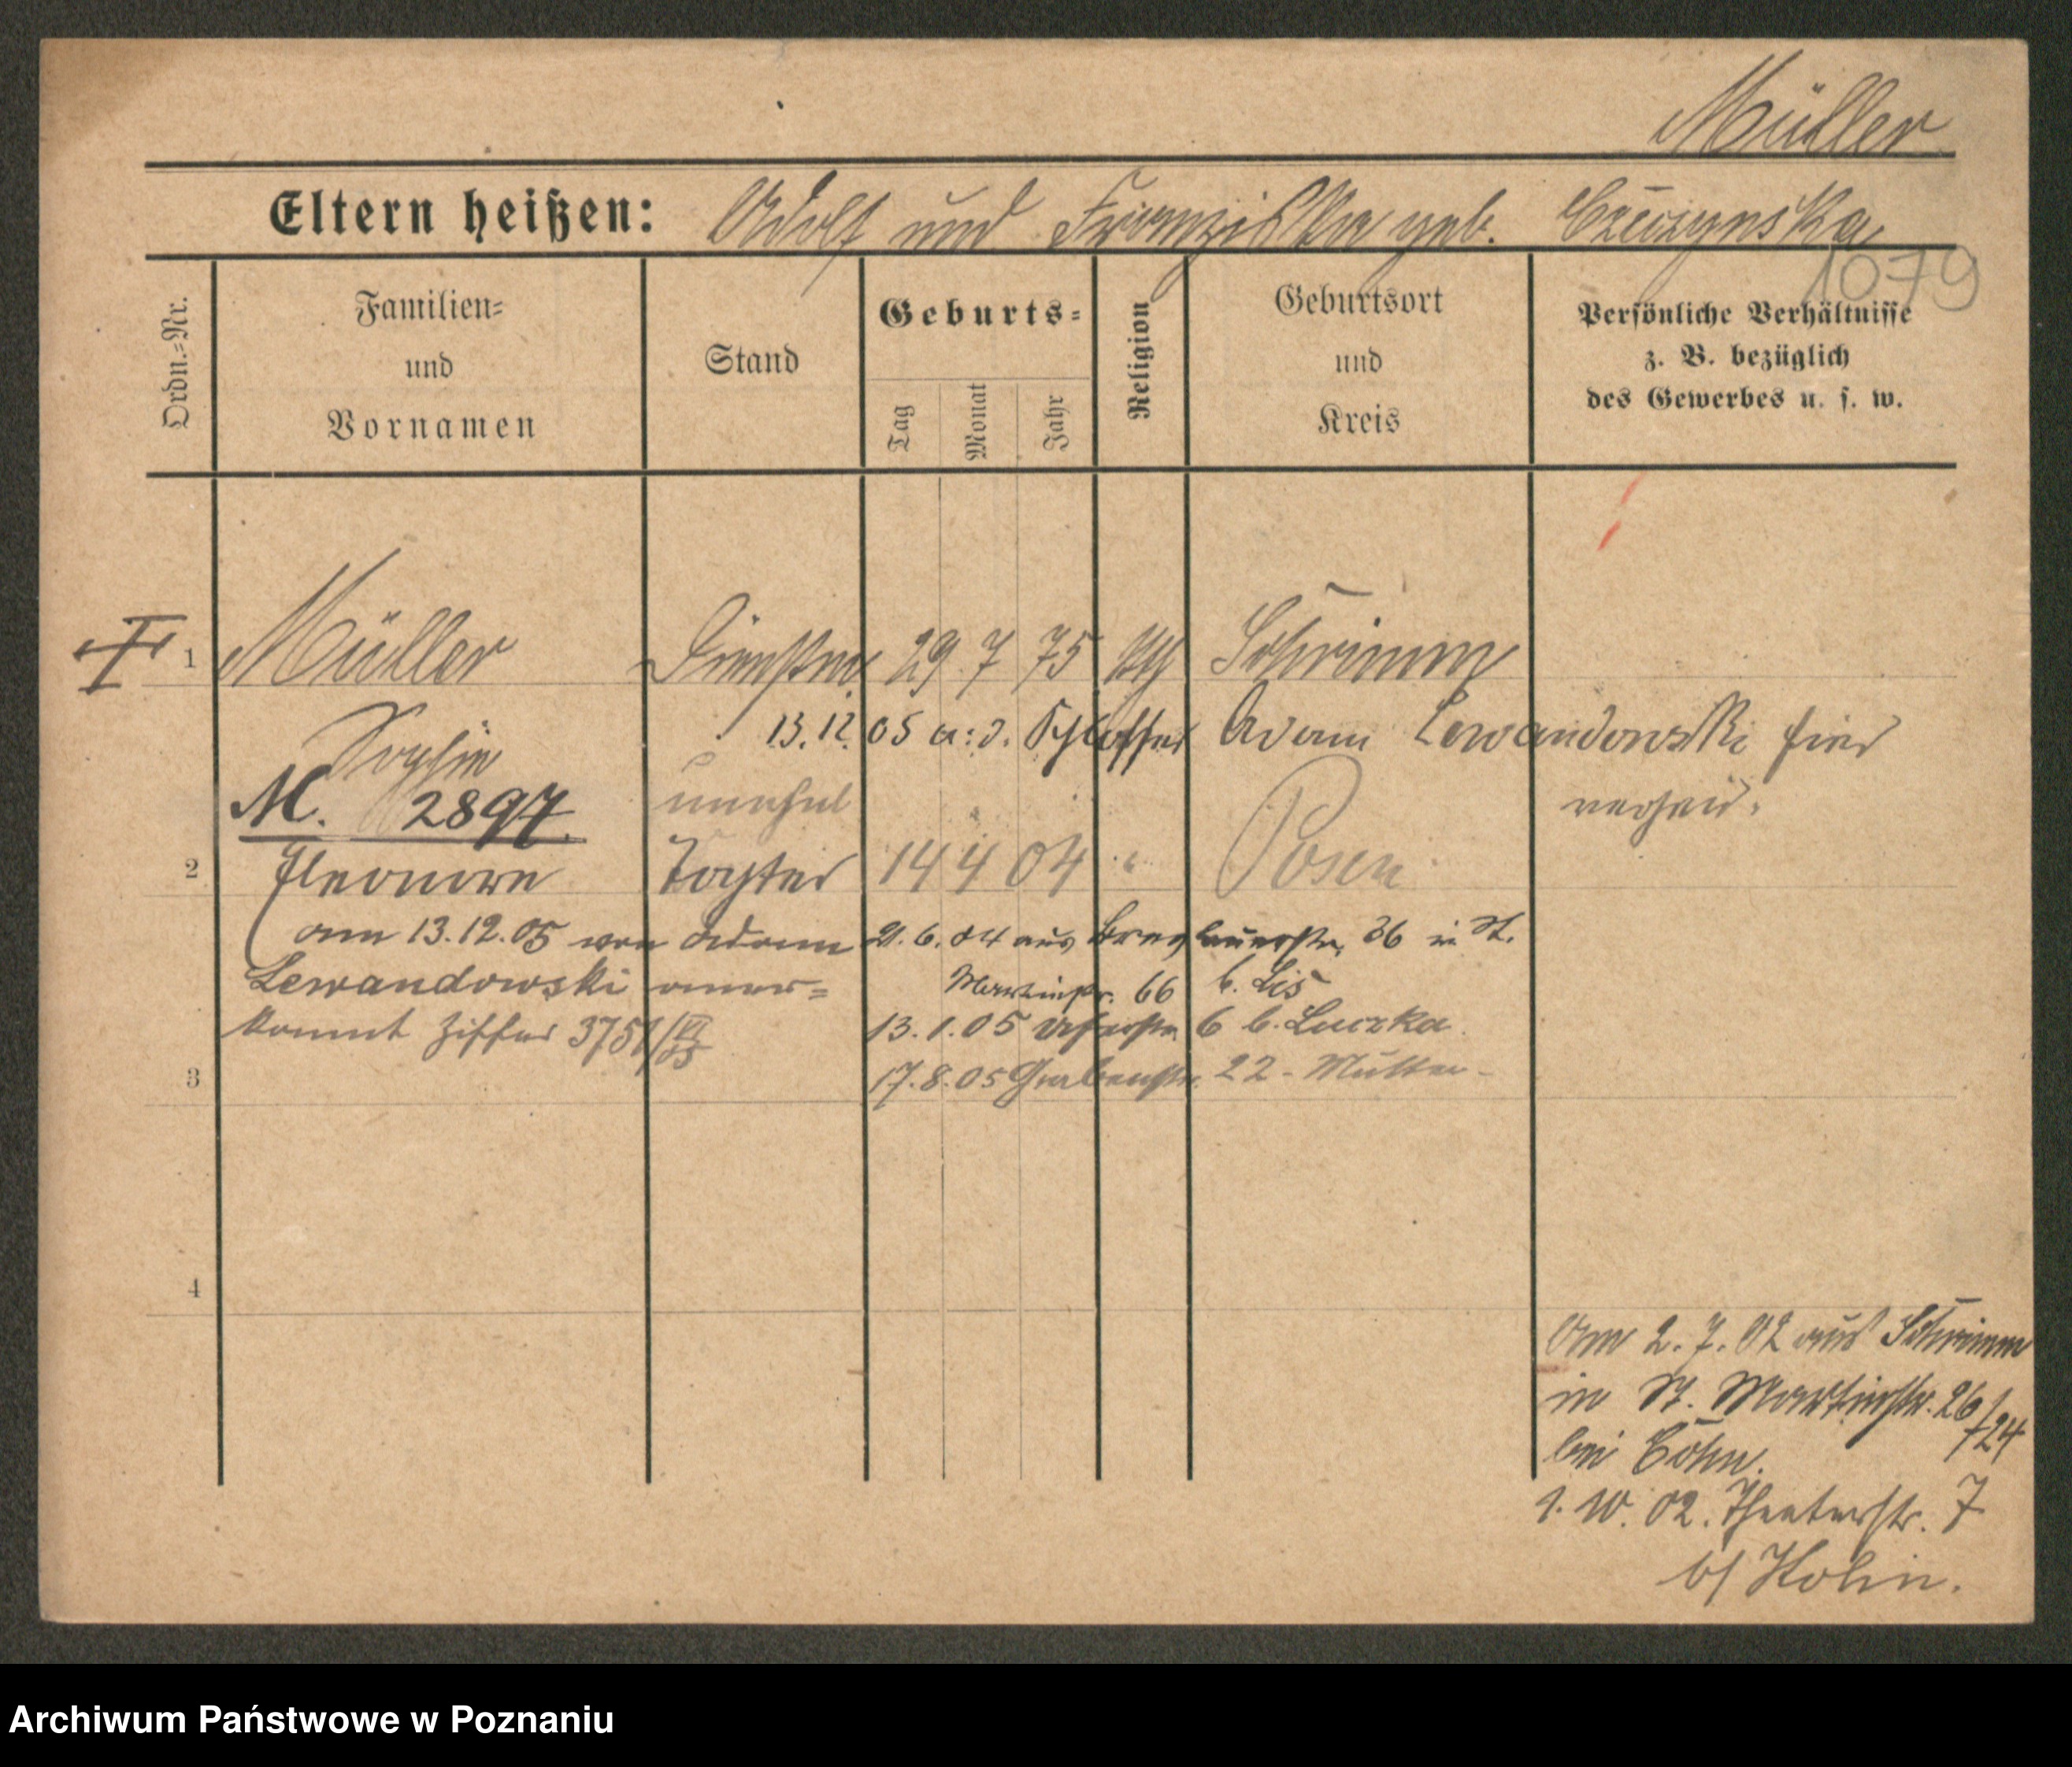 Müller
Eltern heißen: Adolf und Franziska geb.
1079
Ordn.-Nr.
Familien-
und
Vornamen
Stand
Geburts-
Tag
Monat
Jahr
Religion
Geburtsort
und
Kreis
Persönliche Verhältnisse
z. B. bezüglich
des Gewerbes u. s. w.
1 Müller 29 7 75 kth Schrimm
13.12.05 a: d. Schlosser Adam Lewandowski hier
Sophie
M. 2897.
unehel
2 Eleonore Tochter 14 4 04 " Posen
am 13.12.05 von Adam
Lewandowski aner=
kannt Ziffer 3751/VI 05
21.6.04 aus Breslauerstr. 36 in St.
Martinstr. 66 b. Lis
13.1.05 6 b. Luczka
3
17.8.05 Grabenstr. 22 - Mutter -
4
Am 2.7.02 aus Schrimm
in St. Martinstr. 26/
24
bei Cohn.
1.10.02. Theaterstr. 7
b/ Kohn.
Archiwum Państwowe w Poznaniu